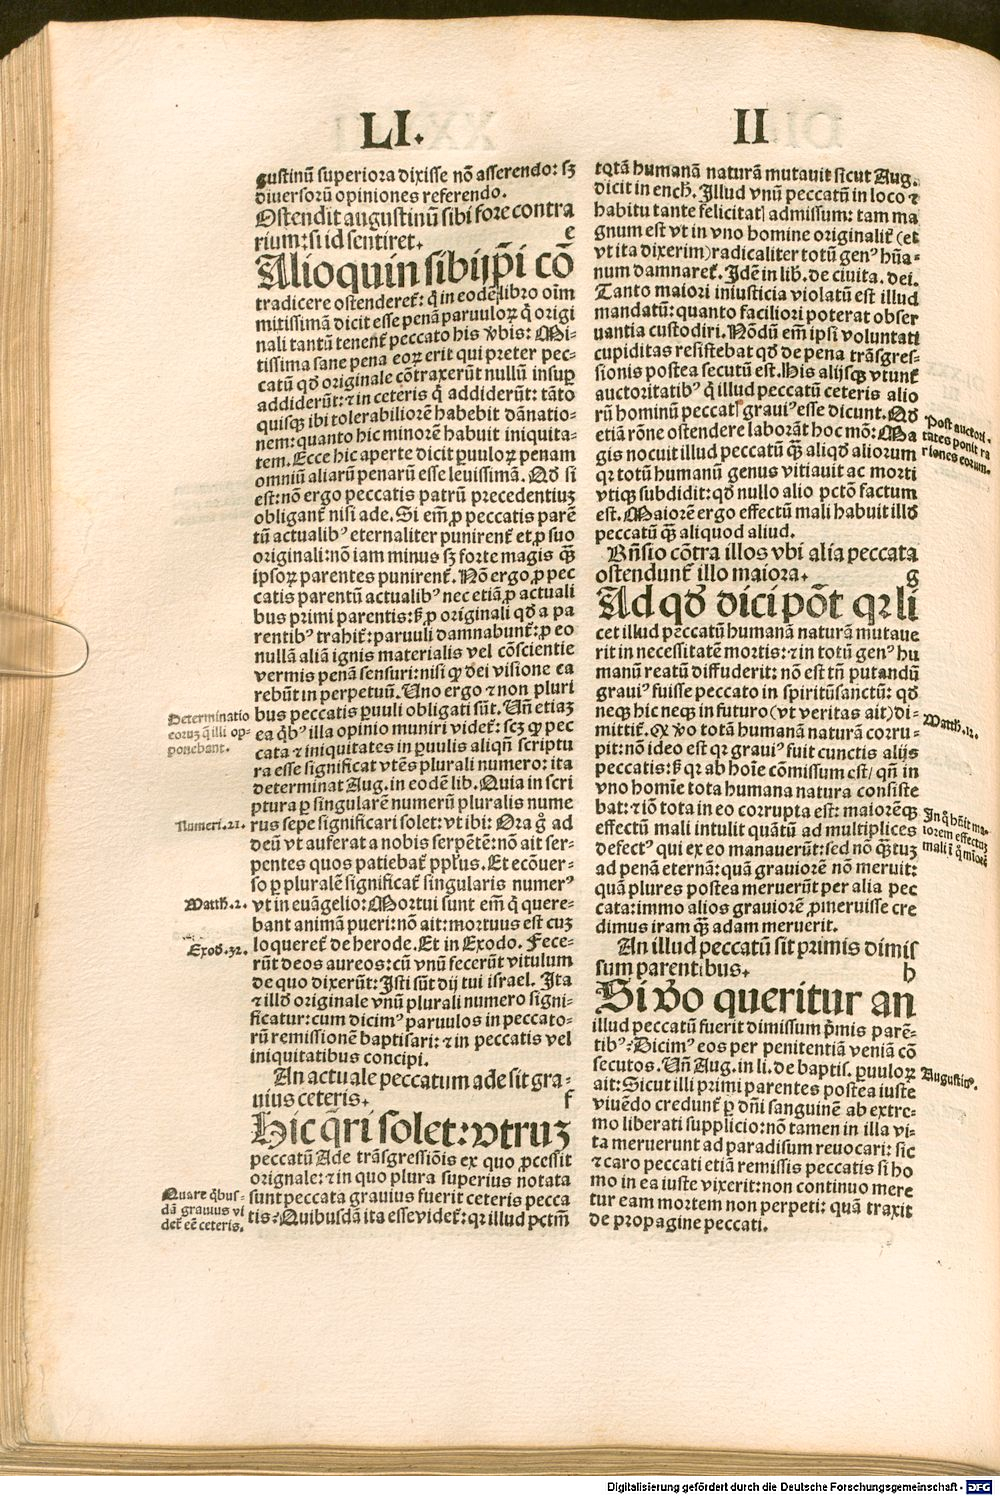 LI. II
gustinū superiora dixisse nō asserendo: sꝫ
diuersorū opiniones referendo.
Ostendit augustinū sibi fore contra
rium: si id sentiret. e
Alioquin sibiip̄i cō
tradicere ostenderet᷑: q̄ in eodē libro oīm
mitissimā dicit esse penā paruuloꝝ q̄ origi
nali tantū tenent᷑ peccato his v̓bis: Mi-
tissima sane pena eoꝝ erit qui preter pec-
catū qđ originale cōtraxerūt nullū insuꝑ
addiderūt: ⁊ in ceteris q̄ addiderūt: tāto
quisqꝫ ibi tolerabiliorē habebit dānatio-
nem: quanto hic minorē habuit iniquita-
tem. Ecce hic aperte dicit ꝑuuloꝝ penam
omniū aliarū penarū esse leuissimā. Qđ si
est: nō ergo peccatis patrū precedentiuꝫ
obligant᷑ nisi ade. Si em̄ ꝓ peccatis parē
tū actualibꝰ eternaliter punirent᷑ et ꝓ suo
originali: nō iam minus sꝫ forte magis qꝫ̄
ipsoꝝ parentes punirent᷑. Nō ergo ꝓ pec
catis parentū actualibꝰ nec etiā ꝓ actuali
bus primi parentis: sꝫ ꝓ originali qđ a pa
rentibꝰ trahit᷑: paruuli damnabunt᷑: ꝓ eo
nullā aliā ignis materialis vel cōscientie
vermis penā sensuri: nisi ꝙ dei visione ca
rebūt in perpetuū. Uno ergo ⁊ non pluri
bus peccatis ꝑuuli obligati sūt. Un̄ etiaꝫ
ea q̄bꝰ illa opinio muniri videt᷑: scꝫ ꝙ pec
cata ⁊ iniquitates in ꝑuulis aliqn̄ scriptu
ra esse significat vtēs plurali numero: ita
determinat Aug. in eodē lib. Quia in scri
ptura ꝑ singularē numerū pluralis nume
rus sepe significari solet: vt ibi: Ora g̊ ad
deū vt auferat a nobis serpētē: nō ait ser-
pentes quos patiebat᷑ ppłus. Et ecōuer-
so ꝑ pluralē significat᷑ singularis numerꝰ
vt in euāgelio: Mortui sunt em̄ q̄ quere-
bant animā pueri: nō ait: mortuus est cuꝫ
loqueret᷑ de herode. Et in Exodo. Fece-
rūt deos aureos: cū vnū fecerūt vitulum
de quo dixerūt: Isti sūt dij tui israel. Ita
⁊ illđ originale vnū plurali numero signi-
ficatur: cum dicimꝰ paruulos in peccato-
rū remissionē baptisari: ⁊ in peccatis vel
iniquitatibus concipi.
An actuale peccatum ade sit gra-
uius ceteris. f
Hic q̄ri solet: vtruꝫ
peccatū Ade trāsgressiōis ex quo ꝓcessit
orignale: ⁊ in quo plura superius notata
sunt peccata grauius fuerit ceteris pecca
tis: Quibusdā ita esse videt᷑: qꝛ illud pctm̄
Determinatio
eoruꝫ q̄ illi op-
ponebant.
Numeri.21.
Matth.2.
Exod.32.
Quare q̄bus-
dā grauius vi
det᷑ eē ceteris.
totā humanā naturā mutauit sicut Aug.
dicit in ench. Illud vnū peccatū in loco ⁊
habitu tante felicitatꝭ admissum: tam ma
gnum est vt in vno homine originalit᷑ (et
vt ita dixerim) radicaliter totū genꝰ hūa-
num damnaret᷑. Idē in lib. de ciuita. dei.
Tanto maiori iniusticia violatū est illud
mandatū: quanto faciliori poterat obser
uantia custodiri. Nōdū em̄ ipsi voluntati
cupiditas resistebat qđ de pena trāsgres-
sionis postea secutū est. His alijsqꝫ vtunt᷑
auctoritatibꝰ q̄ illud peccatū ceteris alio
rū hominū peccatꝭ grauiꝰ esse dicunt. Qđ
etiā rōne ostendere laborāt hoc mō: Ma
gis nocuit illud peccatū qꝫ̄ aliqđ aliorum
qꝛ totū humanū genus vitiauit ac morti
vtiqꝫ subdidit: qđ nullo alio pctō factum
est. Maiorē ergo effectū mali habuit illđ
peccatū qꝫ̄ aliquod aliud.
Rn̄sio cōtra illos vbi alia peccata
ostendunt᷑ illo maiora. g
Ad qđ dici pōt qꝛ li
cet illud peccatū humanā naturā mutaue
rit in necessitatē mortis: ⁊ in totū genꝰ hu
manū reatū diffuderit: nō est tn̄ putandū
grauiꝰ fuisse peccato in spiritūsanctū: qđ
neqꝫ hic neqꝫ in futuro (vt veritas ait) di-
mittit᷑. Qꝛ v̓o totā humanā naturā corru-
pit: nō ideo est qꝛ grauiꝰ fuit cunctis alijs
peccatis: sꝫ qꝛ ab hoīe cōmissum est/ qn̄ in
vno homīe tota humana natura consiste
bat: ⁊ iō tota in eo corrupta est: maiorēqꝫ
effectū mali intulit quātū ad multiplices
defectꝰ qui ex eo manauerūt: sed nō qꝫ̄tuꝫ
ad penā eternā: quā grauiorē nō meruit:
quā plures postea meruerūt per alia pec
cata: immo alios grauiorē ꝓmeruisse cre
dimus iram qꝫ̄ adam meruerit.
An illud peccatū sit primis dimis
sum parentibus. h
Si v̓o queritur an
illud peccatū fuerit dimissum p̄mis parē-
tibꝰ: Dicimꝰ eos per penitentiā veniā cō
secutos. Un̄ Aug. in li. de baptis. ꝑuuloꝝ
ait: Sicut illi primi parentes postea iuste
viuēdo credunt᷑ ꝑ dn̄i sanguinē ab extre-
mo liberati supplicio: nō tamen in illa vi-
ta meruerunt ad paradisum reuocari: sic
⁊ caro peccati etiā remissis peccatis si ho
mo in ea iuste vixerit: non continuo mere
tur eam mortem non perpeti: quā traxit
de propagine peccati.
Post auctori-
tates ponit ra
tiones eorum.
Matth.12.
In q̄ hn̄it ma-
iorem effectuꝫ
mali ī q̄ mīorē
Augustinꝰ.
Digitalisierung gefördert durch die Deutsche Forschungsgemeinschaft - DFG